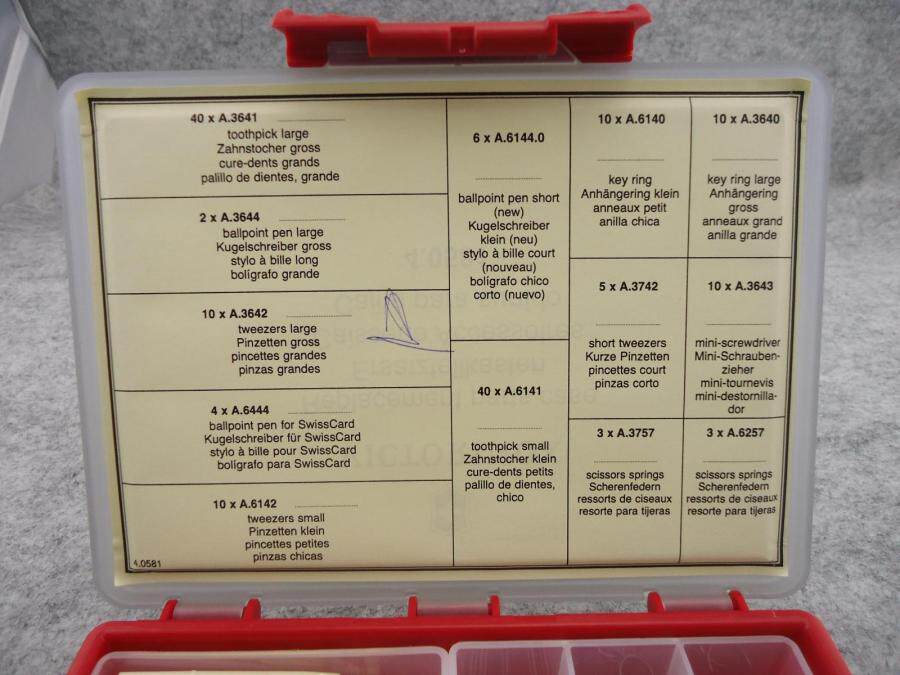 40 x A.3641
toothpick large
Zahnstocher gross
cure-dents grands
palillo de dientes, grande
2 x A.3644
ballpoint pen large
Kugelschreiber gross
stylo à bille long
bolígrafo grande
10 x A.3642
tweezers large
Pinzetten gross
pincettes grandes
pinzas grandes
4 x A.6444
ballpoint pen for SwissCard
Kugelschreiber für SwissCard
stylo à bille pour SwissCard
bolígrafo para SwissCard
10 x A.6142
tweezers small
Pinzetten klein
pincettes petites
pinzas chicas
4.0581
6 x A.6144.0
ballpoint pen short
(new)
Kugelschreiber
klein (neu)
stylo à bille court
(nouveau)
bolígrafo chico
corto (nuevo)
40 x A.6141
toothpick small
Zahnstocher klein
cure-dents petits
palillo de dientes,
chico
10 x A.6140
key ring
Anhängering klein
anneaux petit
anilla chica
10 x A.3640
key ring large
Anhängering
gross
anneaux grand
anilla grande
5 x A.3742
short tweezers
Kurze Pinzetten
pincettes court
pinzas corto
10 x A.3643
mini-screwdriver
Mini-Schrauben-
zieher
mini-tournevis
mini-destornilla-
dor
3 x A.3757
scissors springs
Scherenfedern
ressorts de ciseaux
resorte para tijeras
3 x A.6257
scissors springs
Scherenfedern
ressorts de ciseaux
resorte para tijeras